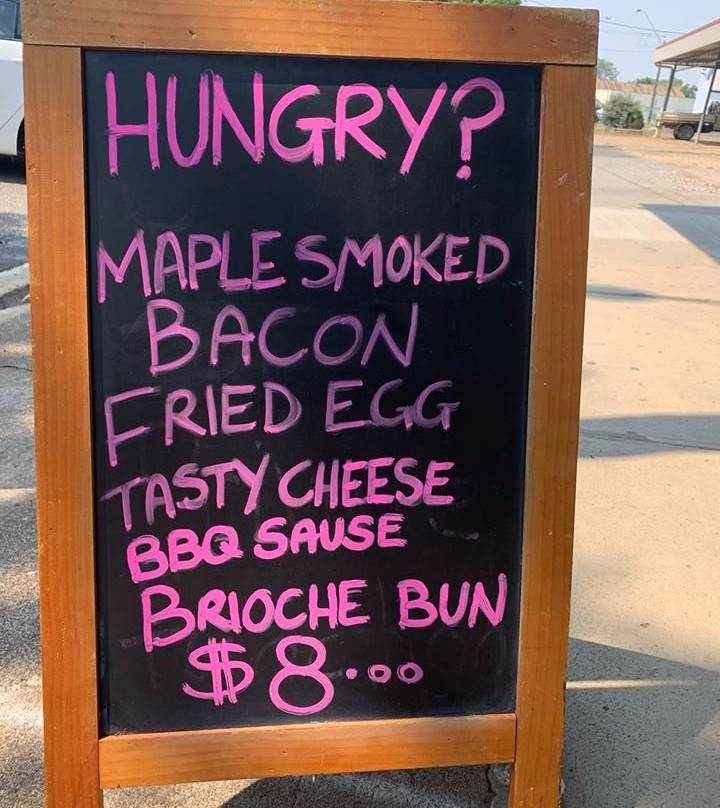 HUNGRY?
MAPLE SMOKED
BACON
FRIED EGG
TASTY CHEESE
BBQ SAUSE
BRIOCHE BUN
$8...